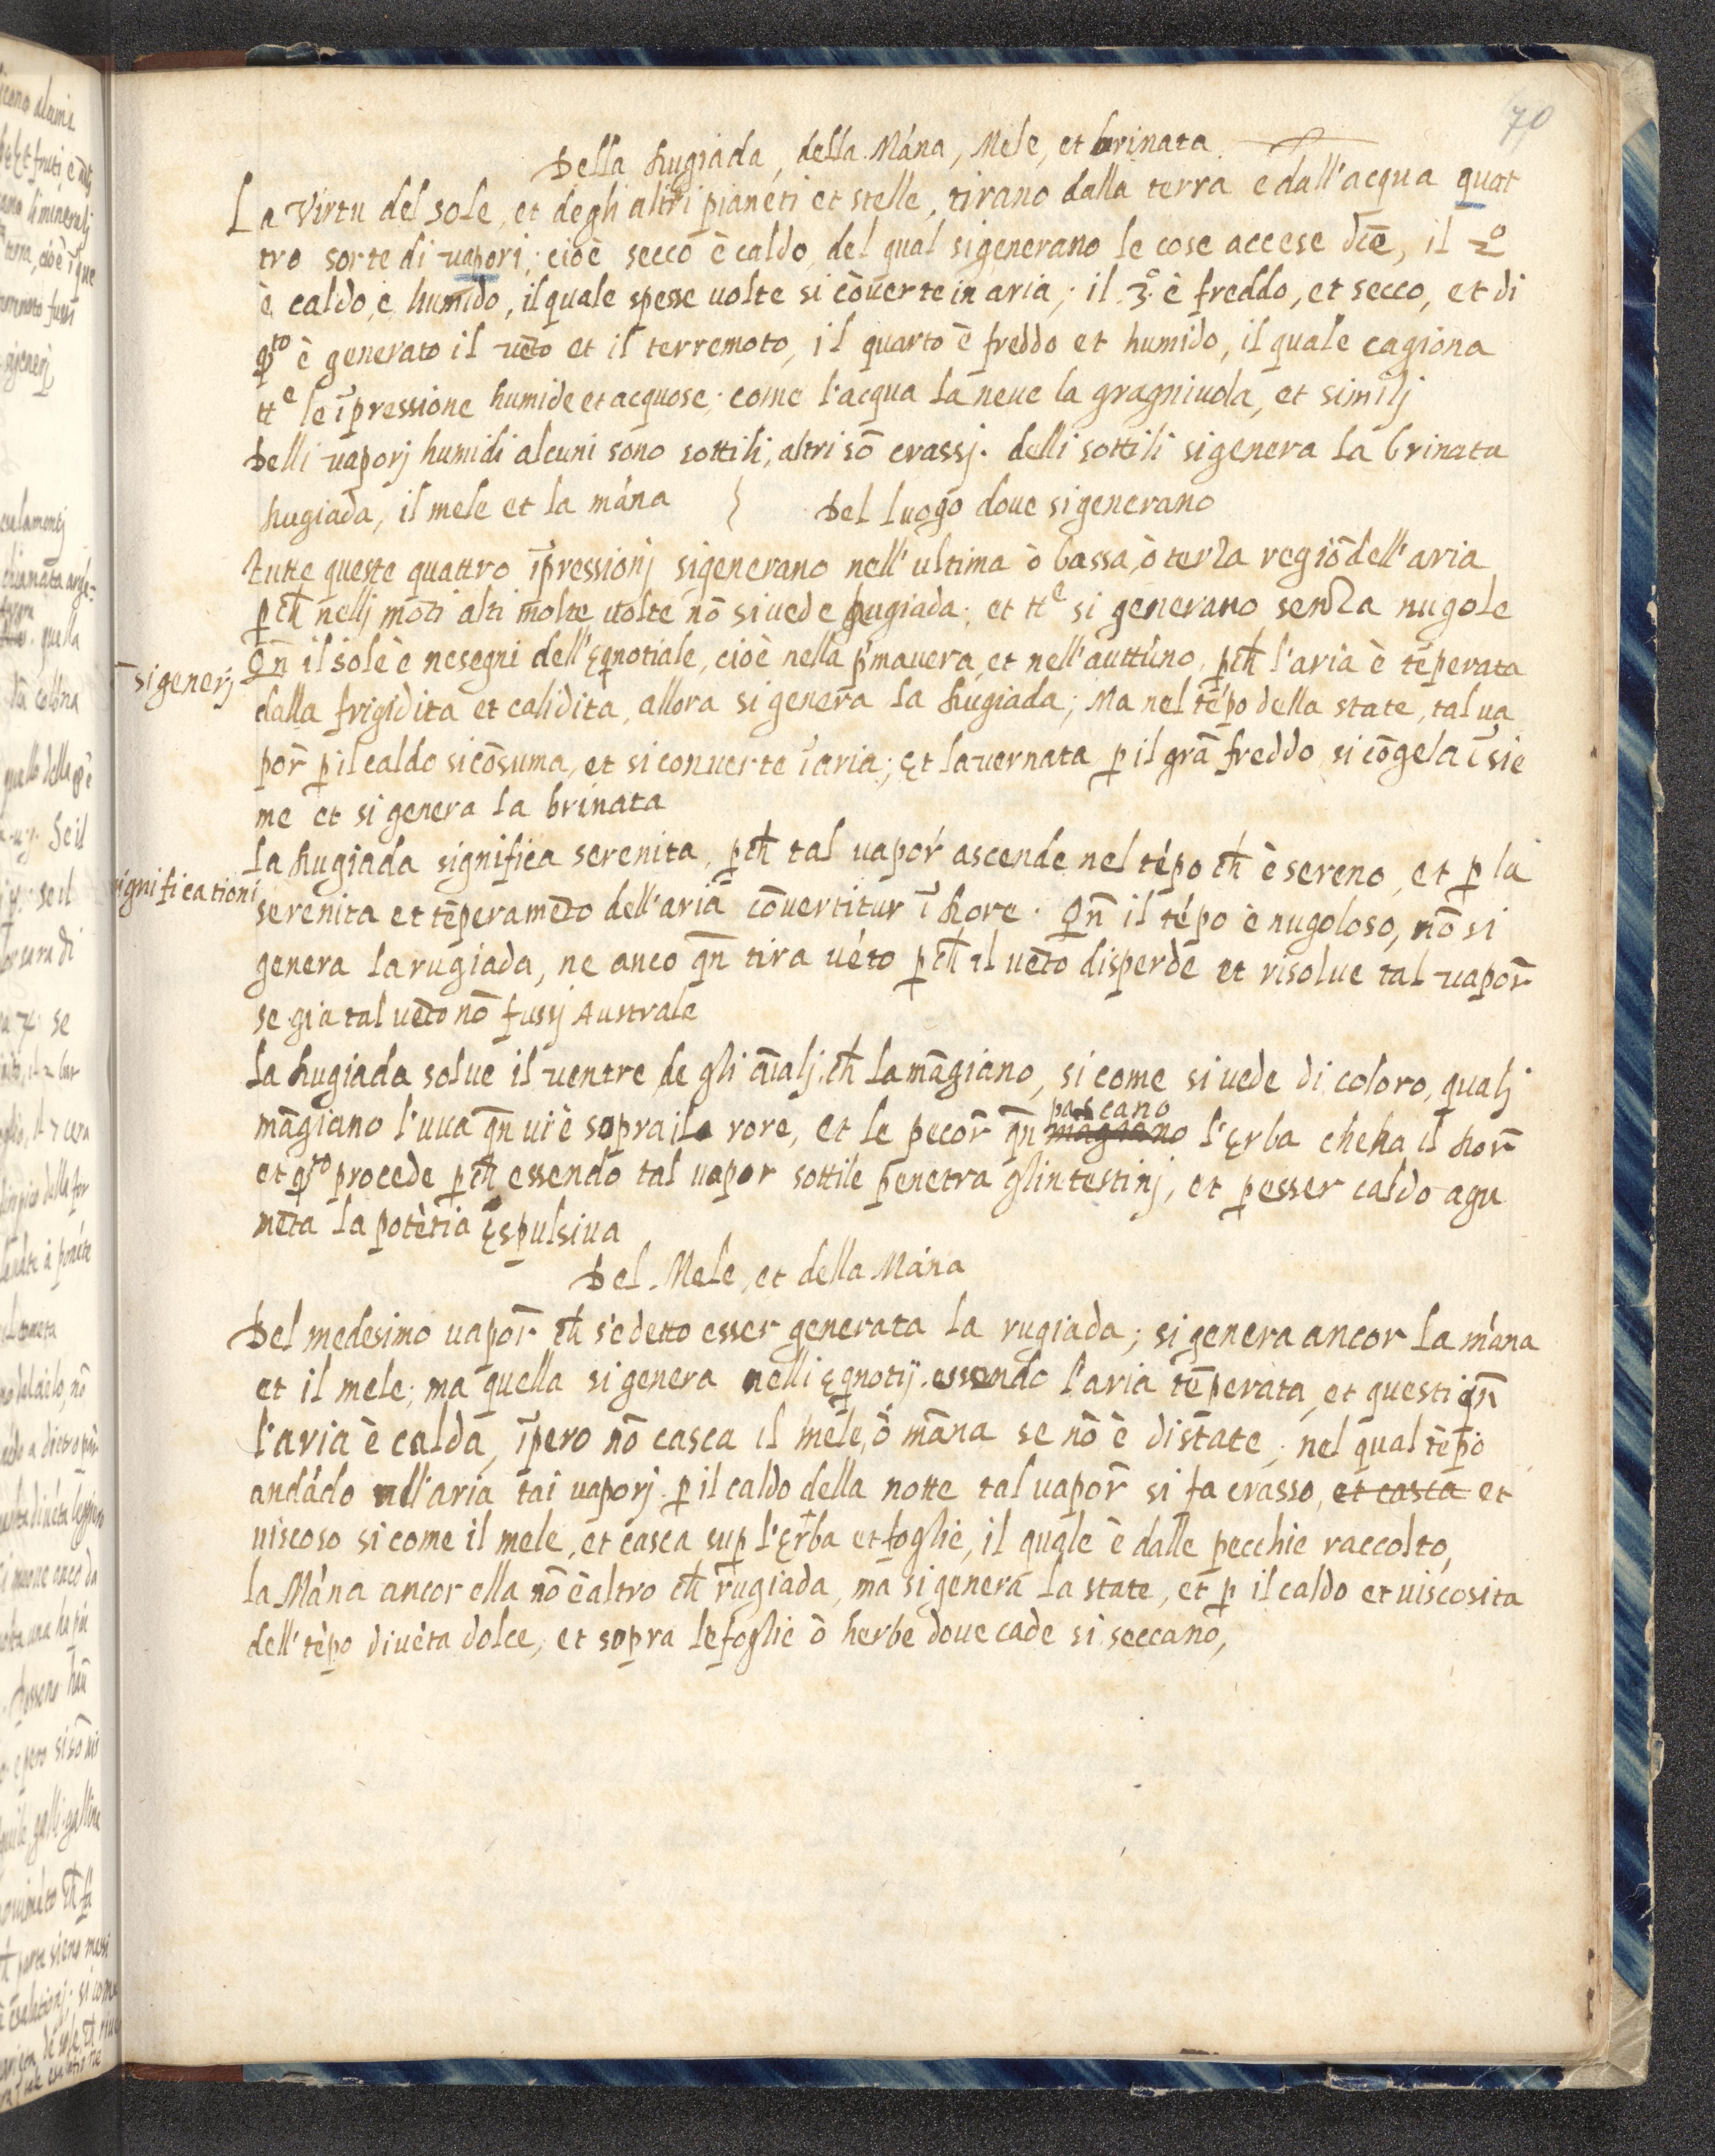 70
Della Rugiada, della Mána, Mele, et brinata
La Virtu del sole, et degli altri pianeti et stelle, tirano dalla terra e dall'acqua quat
tro sorte di vapori; cioè secco è caldo, del qual si generano le cose accese dcē, il 2º
è caldo, e humido, il quale spesse uolte si cōuerte in aria; il 3º è freddo, et secco, et di
q̄to è generato il uēto et il terremoto, il quarto è freddo et humido, il quale cagiona
tte le īpressione humide et acquose; come l'acqua la neue la gragniuola, et similj
Delli vaporj humidi alcuni sono sottili, altri sō crassj. delli sottili si genera la brinata
Rugiada, il mele et la mána } Del luogo doue si generano
tutte queste quattro īpressionj si generano nell'ultima ò bassa, ò terza regiō dell'aria
ꝑch̄ nellj mōti alti molte uolte nō si uede Rugiada; et tte si generano senza nugole
ī si generj
Qn̄ il sole è ne segni dell'Eqnotiale, cioè nella p'mauera, et nell'auttūno, ꝑch̄ l'aria è tēperata
dalla frigidita et calidita, allora si genera la Rugiada; Ma nel tépo della state, tal ua
por̄ ꝑ il caldo si cōsuma, et si conuerte ī aria; Et la vernata ꝑ il grā freddo si cōgela īsie
me et si genera la brinata
significationi
La Rugiada significa serenita, ꝑch̄ tal uapor̄ ascende nel tépo ch̄ è sereno, et ꝑ la
serenita et tēperamēto dell'aria cōuertitur ī Rore. Qn̄ il tépo è nugoloso, nō si
genera la rugiada, ne anco qn̄ tira uéto ꝑch̄ il uēto disperde et risolue tal vapor̄
se gia tal uēto nō fussj Australe
La Rugiada solue il ventre de gli aīalj ch̄ la māgiano, si come si uede di coloro, qualj
māgiano l'uua qn̄ ui è sopra ila rore, et le pecor̄ qn̄ māgiano pascano l'Erba che ha il Ror̄
et q̄to procede ꝑch̄ essendo tal uapor sottile penetra gl'intestinj, et ꝑ esser caldo agu
mēta la potētia Espulsiua
Del Mele, et della Mána
Del medesimo uapor̄ ch̄ s'e detto esser generata la rugiada; si genera ancor la mána
et il mele; ma quella si genera nelli Eqnotij essendo l'aria tēperata, et questi qn̄
l'aria è calda, īpero nō casca il mele, ò māna se nō è di state, nel qual tēpo
andádo nell'aria tai uaporj ꝑ il caldo della notte tal uapor̄ si fa crasso, et casca et
uiscoso si come il mele, et casca supꝑ l'Erba et foglie, il quale è dalle pecchie raccolto,
la Mána ancor ella nō è altro ch̄ rugiada, ma si genera la state, et ꝑ il caldo et uiscosita
dell'tēpo diuēta dolce, et sopra le foglie ò herbe doue cade si seccano,